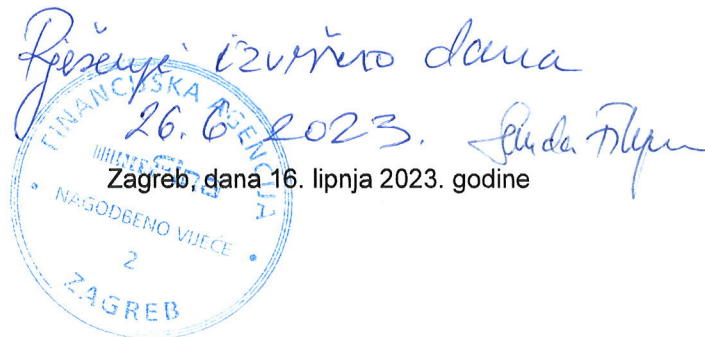 Rješenje izvršno dana
26.6 2023.
Zagreb, dana 16. lipnja 2023. godine
FINANCIJSKA AGENCIJA
NAGODBENO VIJEĆE
2
ZAGREB